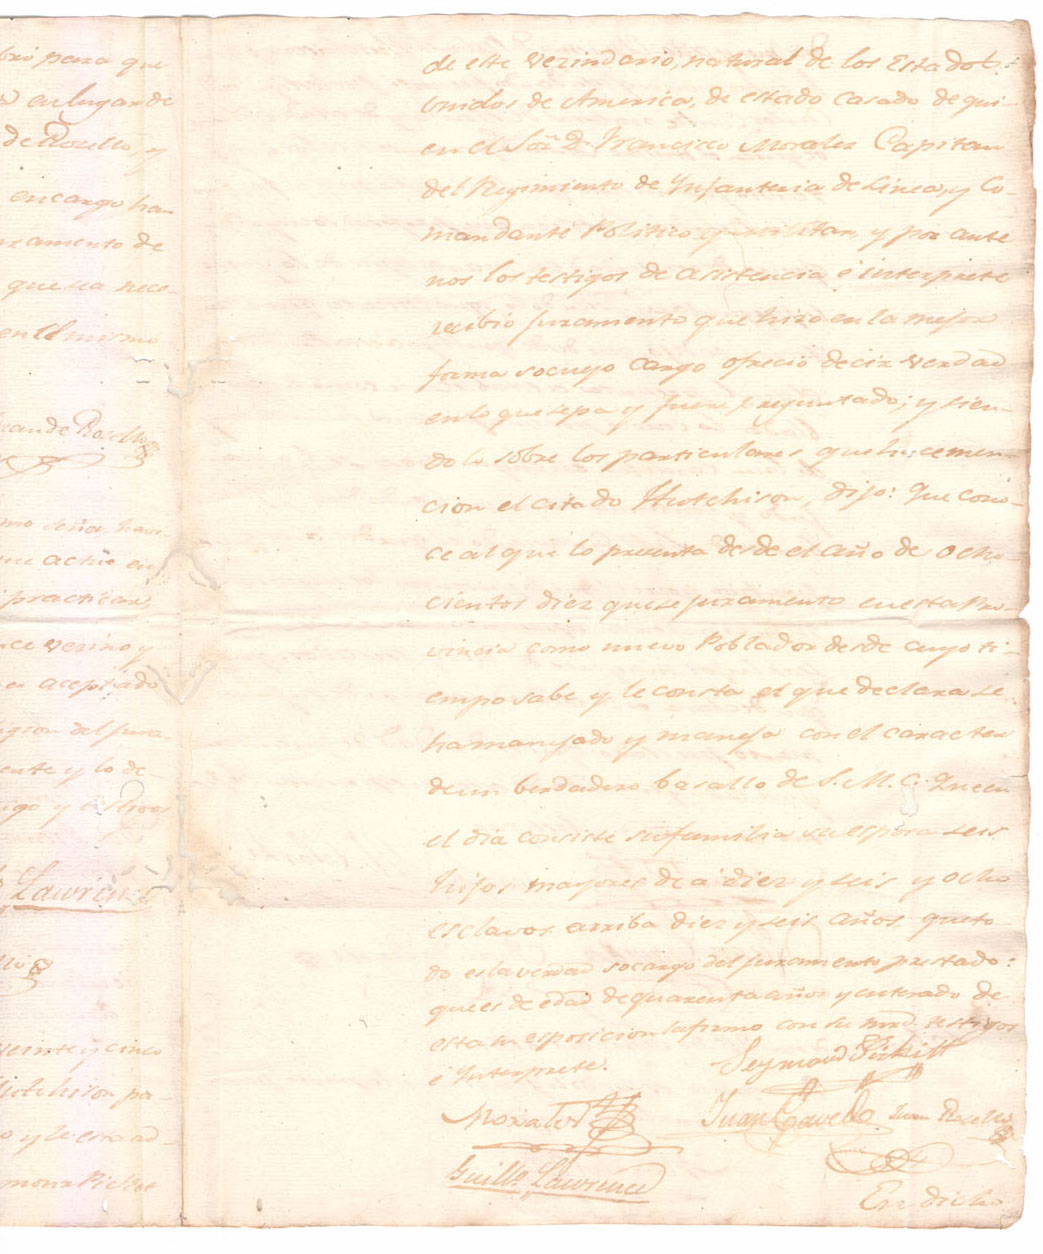 bro para que
en lugar de
de Rosello, y
encargo han
ramento de
que sea nece-
en el mismo
Juan de Rosello
mo seña havi
que actue en
practicar,
ce vecino y
aceptado
gion del jura
ente y lo de-
igo y
Lawrence
veinte y cinco
Hutchison pa-
o y le era ad-
mour Picket
de este vezindario, natural de los Estados
Unidos de America, de estado casado de qui-
en el Sor. Dn. Francisco Morales Capitan
del Regimiento de Infanteria de Linea, y Co-
mandante Politico y militar, y por ante
nos los testigos de asistencia é interprete
recibio juramento que hizo en la mejor
forma so cuyo cargo ofrecio decir verdad
en lo que sepa y fuere preguntado; y sien-
dolo sobre los particulares que hace men-
cion el citado Hutchison, dijo: Que cono-
ce al que lo presenta desde el año de ocho
cientos diez que se juramento en esta Pro
vincia como nuevo Poblador desde cuyo ti-
empo sabe y le consta el que declara se
ha manejado y maneja con el caracter
de un berdadero basallo de S. M. C. Que en
el dia consiste su familia su esposa seis
hijos mayores de a diez y seis y ocho
esclavos arriba diez y seis años que to-
do es la verdad so cargo del juramento prestado:
que es de edad de quarenta años y enterado de
esta su esposicion la firmo con su mrd. testigos
é Interprete.
Seymour Pickitt
Morales
Juan Cavedo
Juan Rosello
Guillo Lawrence
En dicho